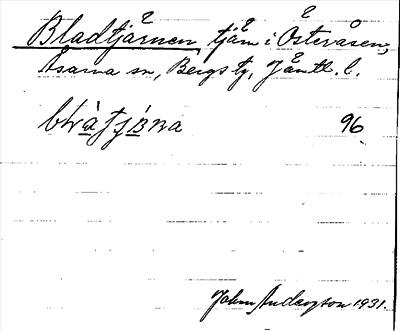 Bladtjärnen, tjärn i Österåsen,
Åsarna sn, Bergs tg, Jämtl. l.
96
John Anderzon 1931.